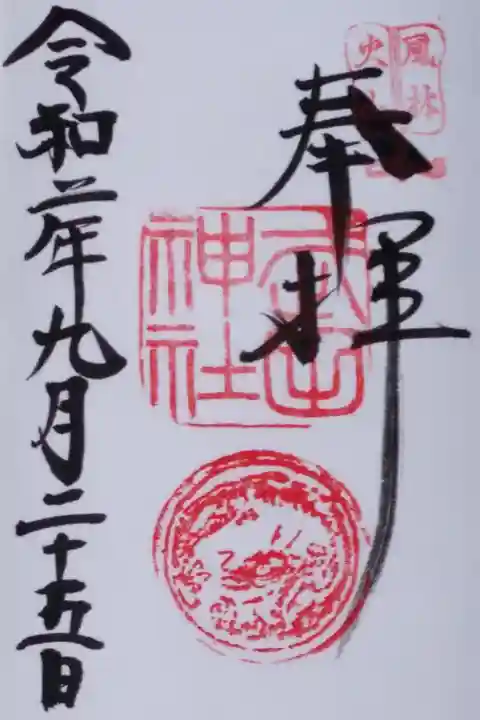 奉拝
風林
火山
武田
神社
令和二年九月二十五日